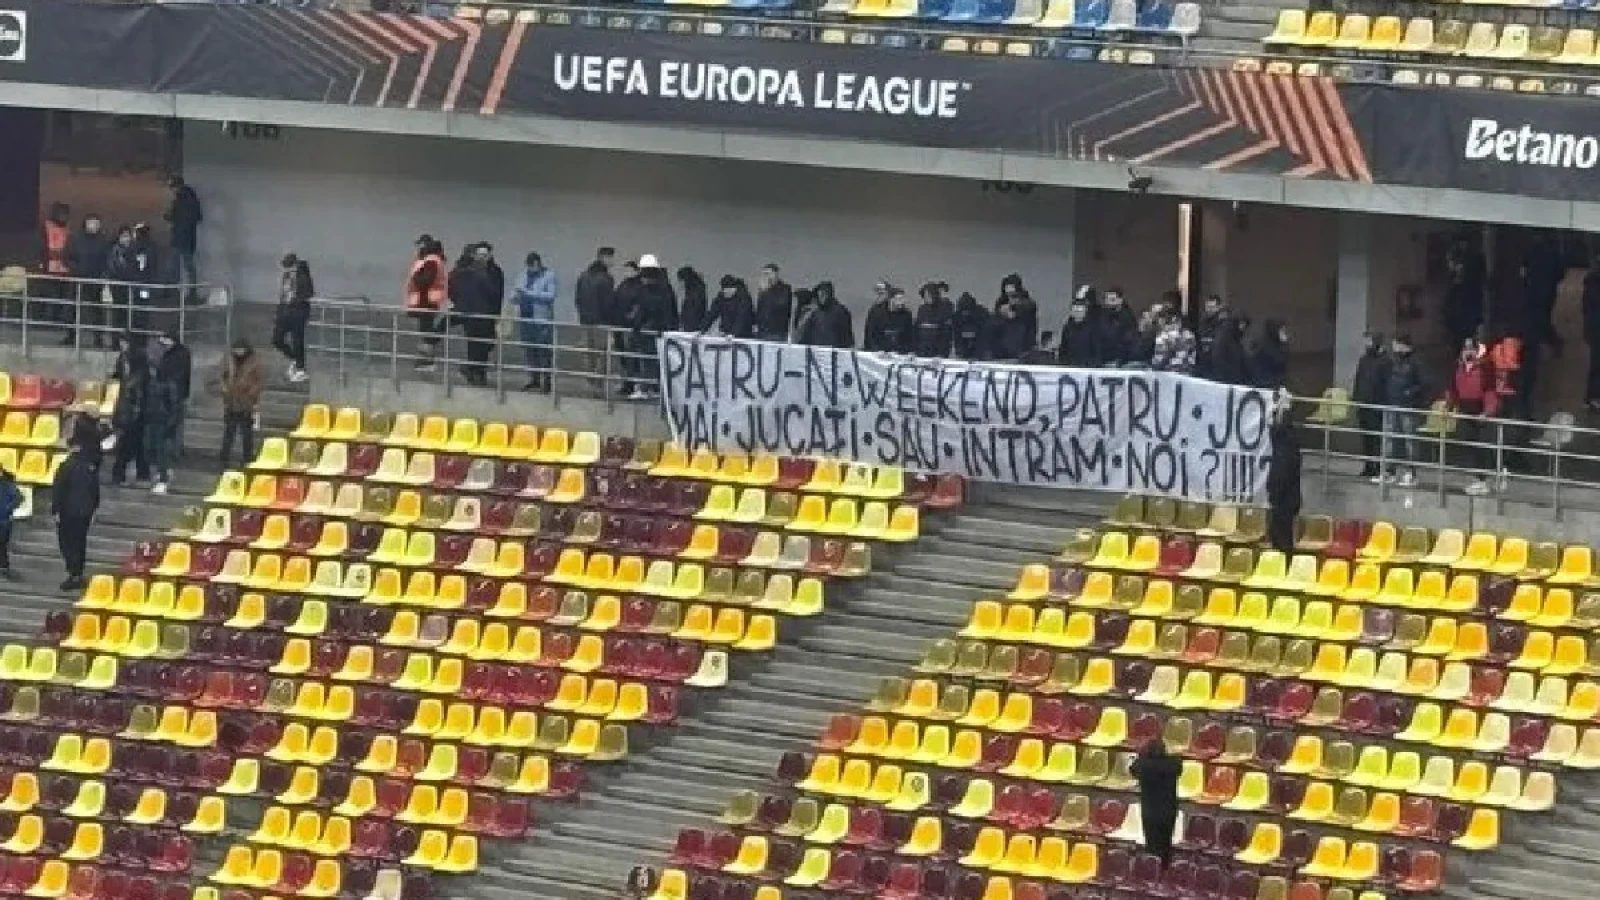 UEFA EUROPA LEAGUE™
Betano
PATRU-N•WEEKEND, PATRU•JOI
MAI•JUCAȚI•SAU•INTRĂM•NOI?!!!!!?